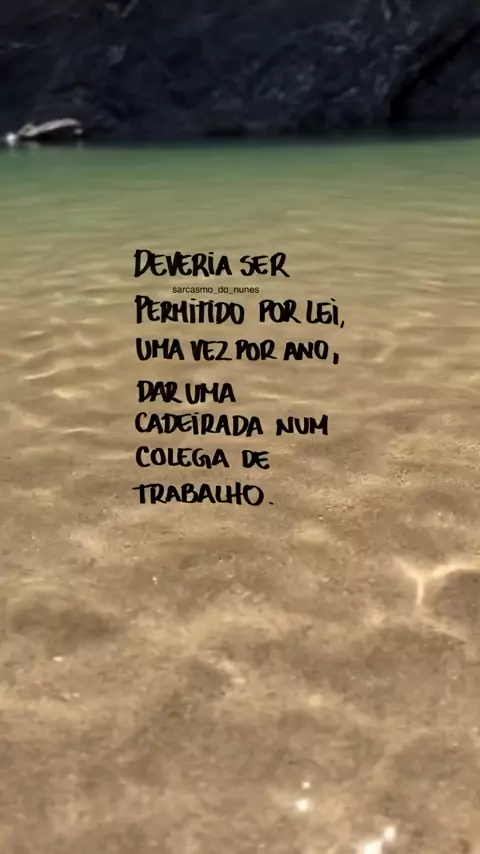 DEVERIA SER
sarcasmo_do_nunes
PERMITIDO POR LEI,
UMA VEZ POR ANO,
DAR UMA
CADEIRADA NUM
COLEGA DE
TRABALHO.